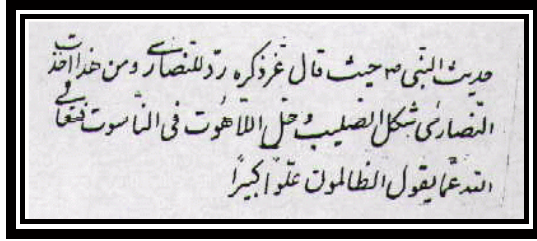 حديث النبى ص حيث قال عز ذكره ردّ للنصارى ومن هذا اخذت
النصارى شكل الصليب و حلّ اللّاهوت فى النّاسوت فتعالى
الله عمّا يقول الظالمون علّوا كبيرًا